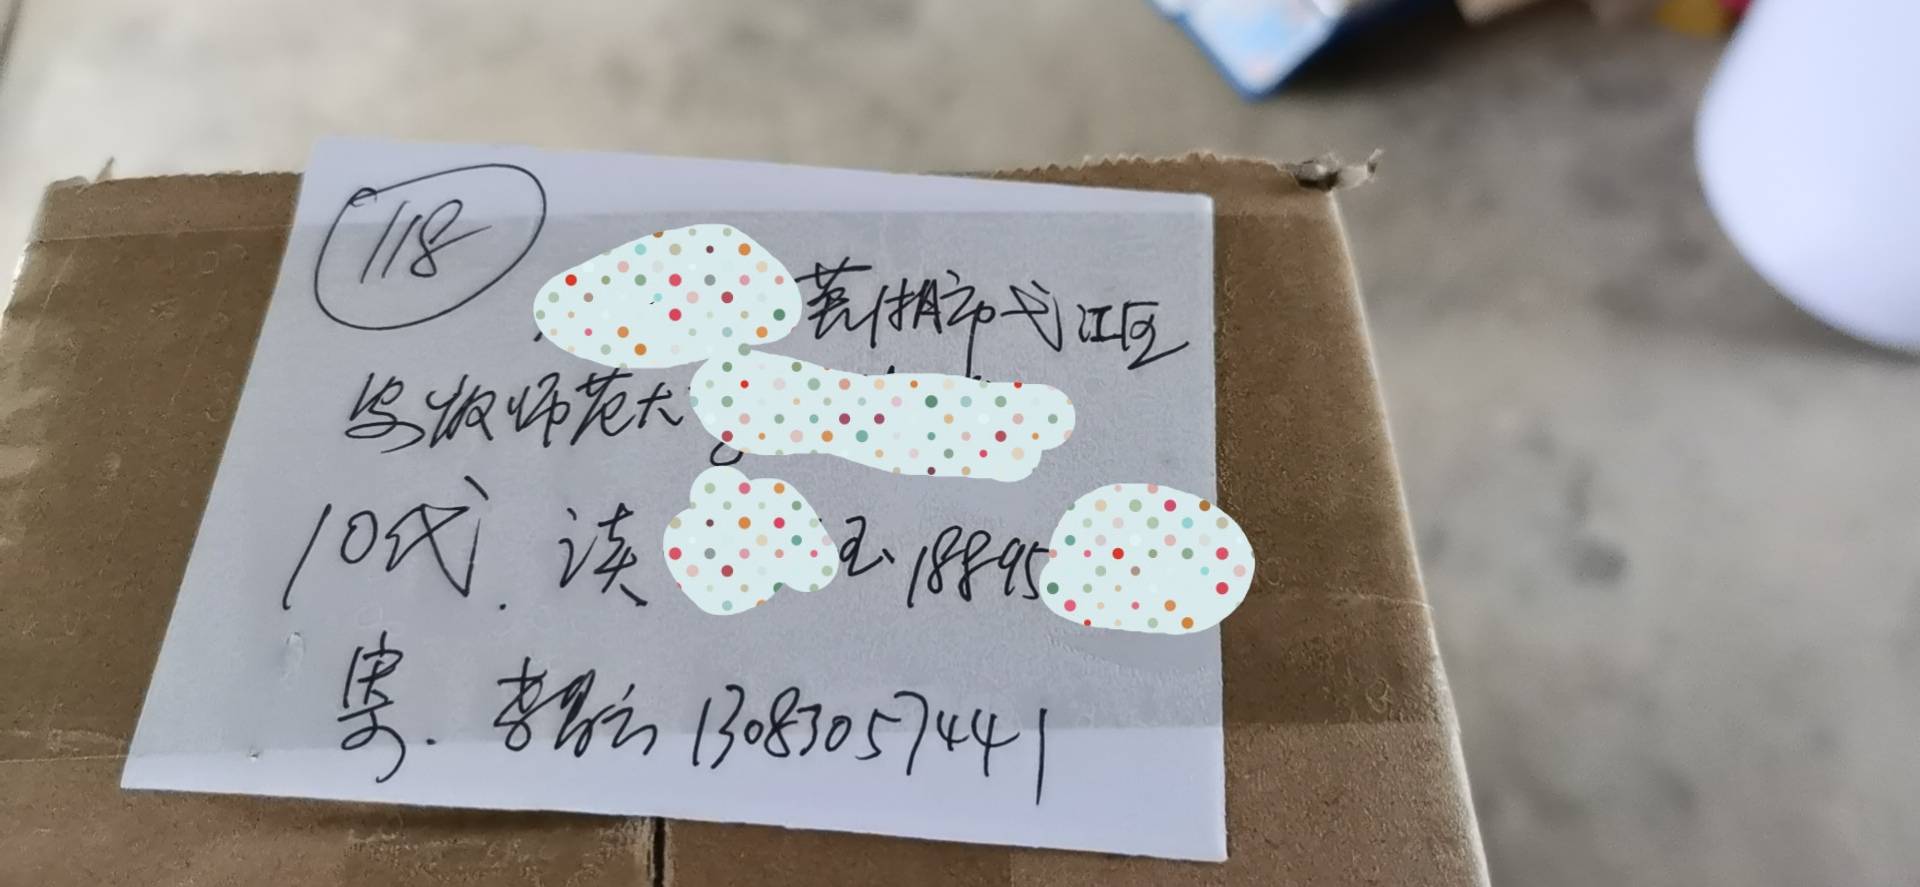 118
芜湖市弋江区
安徽师范大
10代. 读 玉 18895
寄. 李昌云 13083057441